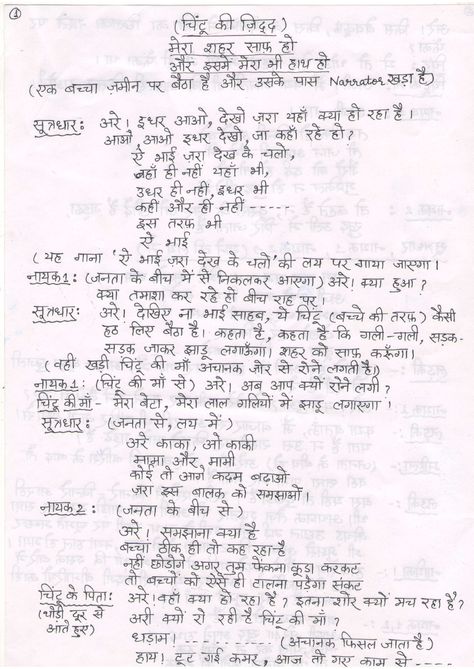 ①
(चिंटू की ज़िद्द)
मेरा शहर साफ़ हो
और इसमें मेरा भी हाथ हो
(एक बच्चा ज़मीन पर बैठा है और उसके पास Narrator खड़ा है)
सूत्रधार: अरे! इधर आओ, देखो ज़रा यहाँ क्या हो रहा है
आओ, आओ इधर देखो, जा कहाँ रहे हो?
ऐ भाई ज़रा देख के चलो,
वहाँ ही नहीं यहाँ भी,
उधर ही नहीं, इधर भी
कहीं और ही नहीं -----
इस तरफ़ भी
ऐ भाई
(यह गाना 'ऐ भाई ज़रा देख के चलो' की लय पर गाया जाएगा।
नायक1: (जनता के बीच में से निकलकर आएगा) अरे! क्या हुआ?
क्या तमाशा कर रहे हो बीच राह पर।
सूत्रधार: अरे! देखिए ना भाई साहब, ये चिंटू (बच्चे की तरफ़) कैसी
हठ लिए बैठा है। कहता है, कहता है कि गली-गली, सड़क-
सड़क जाकर झाडू लगाऊँगा। शहर को साफ़ करूँगा।
(वहीं खड़ी चिंटू की माँ अचानक ज़ोर से रोने लगती है।)
नायक1: (चिंटू की माँ से) अरे! अब आप क्यों रोने लगी?
चिंटू की माँ- मेरा बेटा, मेरा लाल गलियों में झाडू लगाएगा।
सूत्रधार: (जनता से, लय में)
अरे काका, ओ काकी
मामा और मामी
कोई तो आगे कदम बढ़ाओ
ज़रा इस बालक को समझाओ।
नायक2: (जनता के बीच से)
अरे! समझाना क्या है
बच्चा ठीक ही तो कह रहा है
नहीं छोड़ोगे अगर तुम फेंकना कूड़ा करकट
तो बच्चों को ऐसे ही टालना पड़ेगा संकट
चिंटू के पिता: अरे! वहाँ क्या हो रहा है? इतना शोर क्यों मच रहा है?
(थोड़ी दूर से आते हुए) अरी क्यों रो रही है चिंटू की माँ?
धड़ाम। (अचानक फिसल जाता है)
हाय! टूट गई कमर, आज तो गए काम से ----